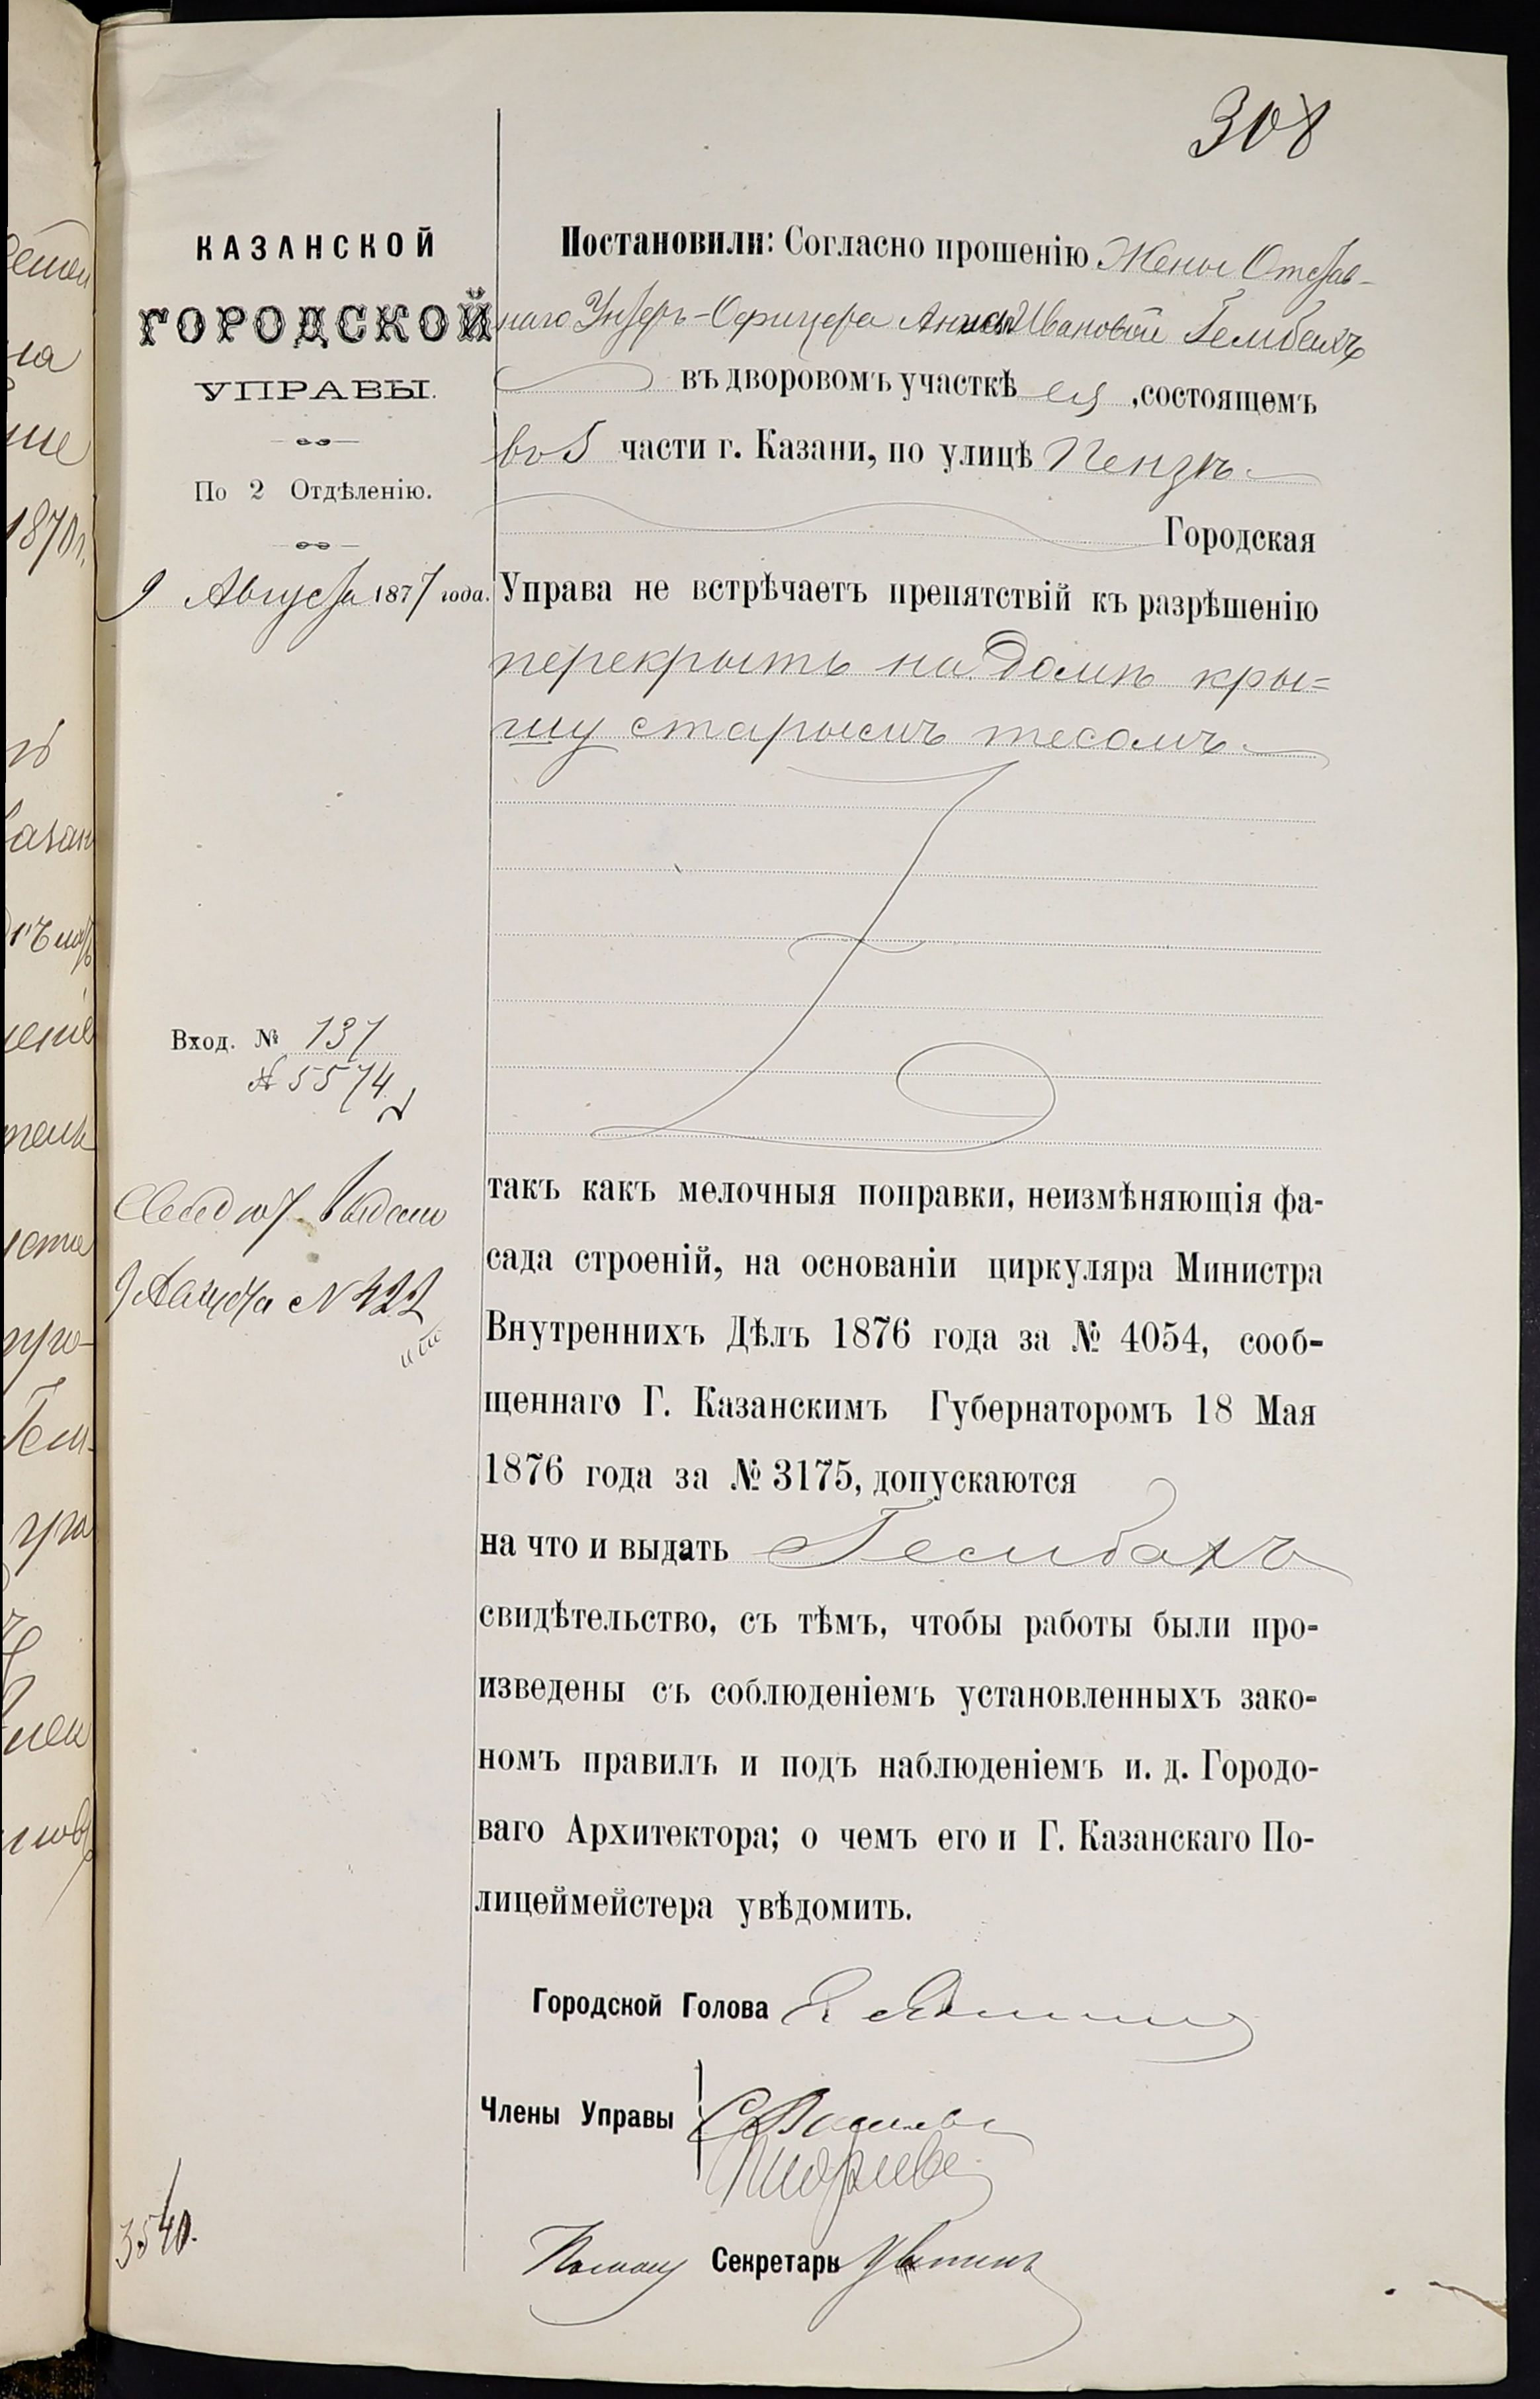 308
КАЗАНСКОЙ
ГОРОДСКОЙ
УПРАВЫ.
По 2 Отдѣленію.
9 Августа 1877 года.
Постановили: Согласно прошенію Жены Отстав-
наго Унтеръ-Офицера Анны Ивановой Гембахъ
въ дворовомъ участкѣ ея, состоящемъ
во 5 части г. Казани, по улицѣ Пензѣ
Городская
Управа не встрѣчаетъ препятствій къ разрѣшенію
перекрыть на домѣ кры=
шу старымъ тесомъ
Вход. № 137
№ 5574
Свидѣт. Выдано
9 Августа № 422
такъ какъ мелочныя поправки, неизмѣняющія фа-
сада строеній, на основаніи циркуляра Министра
Внутреннихъ Дѣлъ 1876 года за № 4054, сооб-
щеннаго Г. Казанскимъ Губернаторомъ 18 Мая
1876 года за № 3175, допускаются
на что и выдать Гембахъ
свидѣтельство, съ тѣмъ, чтобы работы были про-
изведены съ соблюденіемъ установленныхъ зако-
номъ правилъ и подъ наблюденіемъ и. д. Городо-
ваго Архитектора; о чемъ его и Г. Казанскаго По-
лицеймейстера увѣдомить.
Городской Голова
Члены Управы
Секретарь
3540.